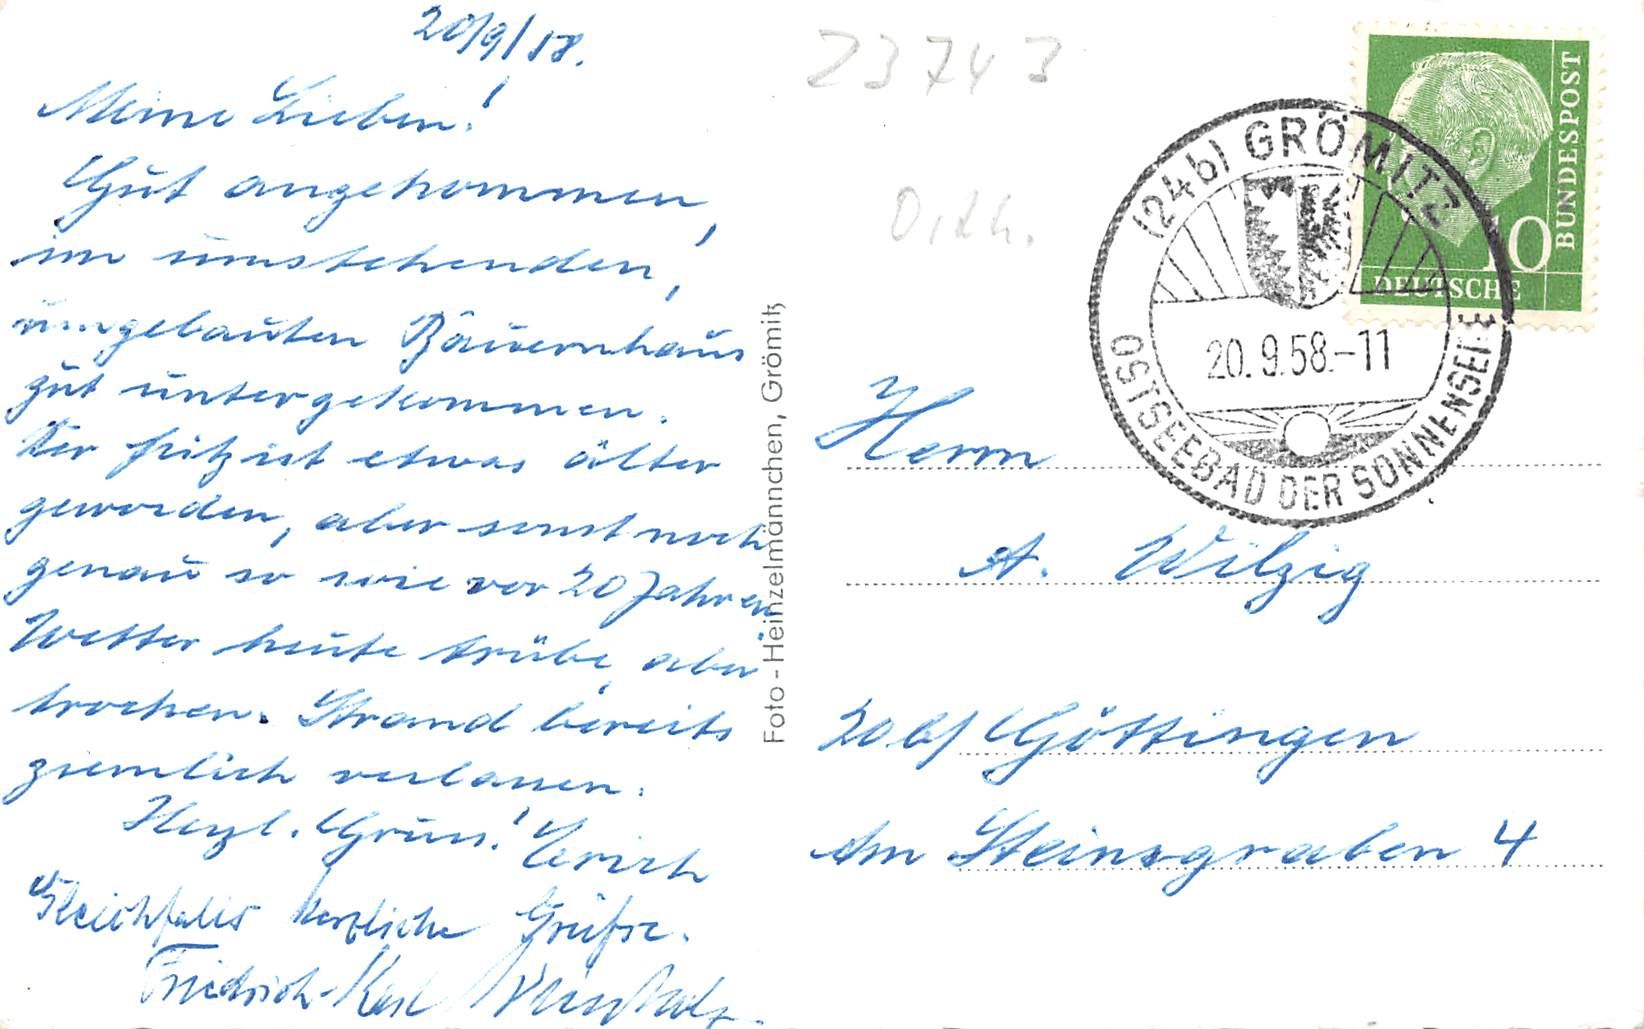 20/9/58.
Meine Lieben!
Gut angekommen,
im umstehenden,
umgebauten Bauernhaus
gut untergekommen.
Der Fritz ist etwas älter
geworden, aber sonst noch
genau so wie vor 20 Jahren.
Wetter heute trübe, aber
trocken. Strand bereits
ziemlich verlassen.
Herzl. Gruss! Erich
Gleichfalls herzliche Grüße.
Friedrich-Karl
Foto - Heinzelmännchen, Grömitz
23743
DEUTSCHE
BUNDESPOST
10
(24b) GRÖMITZ
20.9.58.-11
OSTSEEBAD DER SONNENSEITE
Herrn
A. Wilzig
20b/ Göttingen
Am Steinsgraben 4